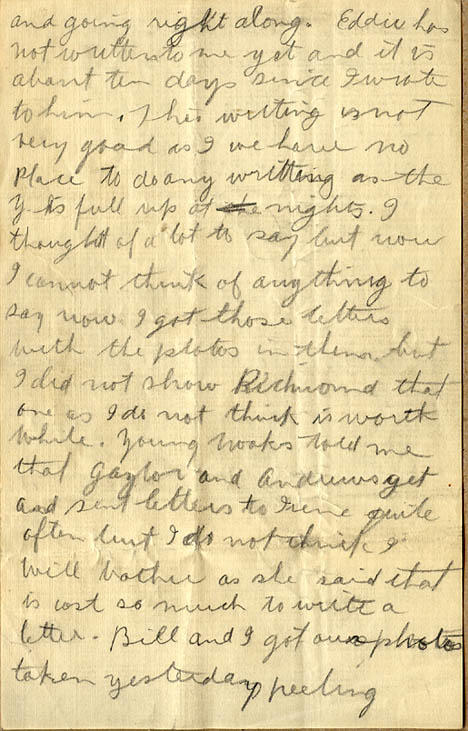 and going right along. Eddie has
not written to me yet and it is
about ten days since I wrote
to him. This writting is not
very good as I we have no
Place to do any writting as the
Y is full up at the nights. I
thought of a lot to say but now
I cannot think of anything to
say now. I got those letters
with the photos in them but
I did not show Richmond that
one as I do not think is worth
while. Young told me
that Gaylor and Andrews get
and sent letters to Irene quite
often but I do not think I
will bother as she said that
is cost so much to write a
letter. Bill and I got our photos
taken yesterday peeling